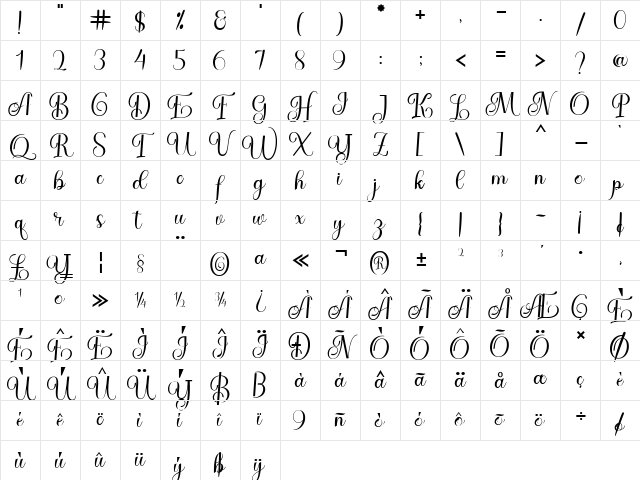 ! " # $ % & ' ( ) * + , - . / 0
1 2 3 4 5 6 7 8 9 : ; < = > ? @
A B C D E F G H I J K L M N O P
Q R S T U V W X Y Z [ \ ] ^ _ `
a b c d e f g h i j k l m n o p
q r s t u v w x y z { | } ~ ¡ ¢
£ ¥ ¦ § ¨ © ª « ¬ ® ± ² ³ ´ · ¸
¹ º » ¼ ½ ¾ ¿ À Á Â Ã Ä Å Æ Ç È
É Ê Ë Ì Í Î Ï Ð Ñ Ò Ó Ô Õ Ö × Ø
Ù Ú Û Ü Ý Þ ß à á â ã ä å æ ç è
é ê ë ì í î ï ð ñ ò ó ô õ ö ÷ ø
ù ú û ü ý þ ÿ